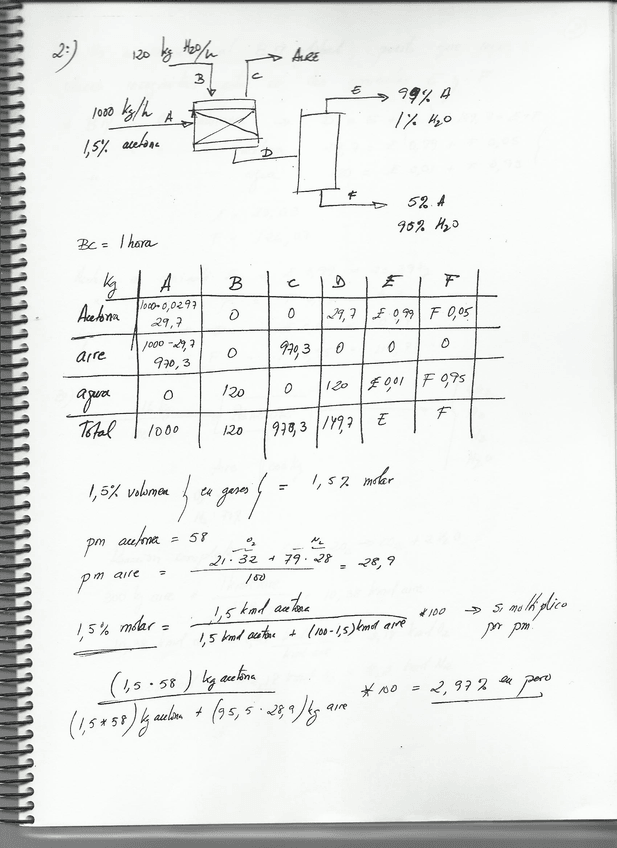 2:)
120 kg H2O/h
B
C
AIRE
1000 kg/h A
1,5% acetona
D
E 99% A
1% H2O
F 5% A
95% H2O
BC = 1 hora
Kg A B C D E F
Acetona 1000·0,0297 29,7 0 0 29,7 E 0,99 F 0,05
aire 1000-29,7 970,3 0 970,3 0 0 0
agua 0 120 0 120 E 0,01 F 0,95
Total 1000 120 970,3 149,7 E F
1,5% volumen } en gases } = 1,5% molar
pm acetona = 58
pm aire = 21·32 + 79·28 / 100 = 28,9
O2 N2
1,5% molar = 1,5 kmol acetona / 1,5 kmol acetona + (100-1,5) kmol aire *100 → Si multiplico
por pm
(1,5·58) kg acetona / (1,5*58) kg acetona + (95,5·28,9) kg aire *100 = 2,97% en peso